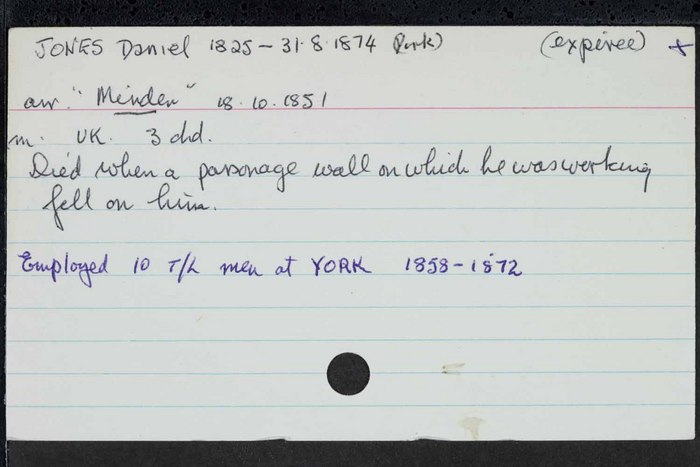 JONES Daniel 1825 - 31.8.1874 (York) (expiree) +
arr. "Minden" 18.10.1851
m. UK. 3 chd.
Died when a parsonage wall on which he was working
fell on him.
Employed 10 T/L men at YORK 1858-1872